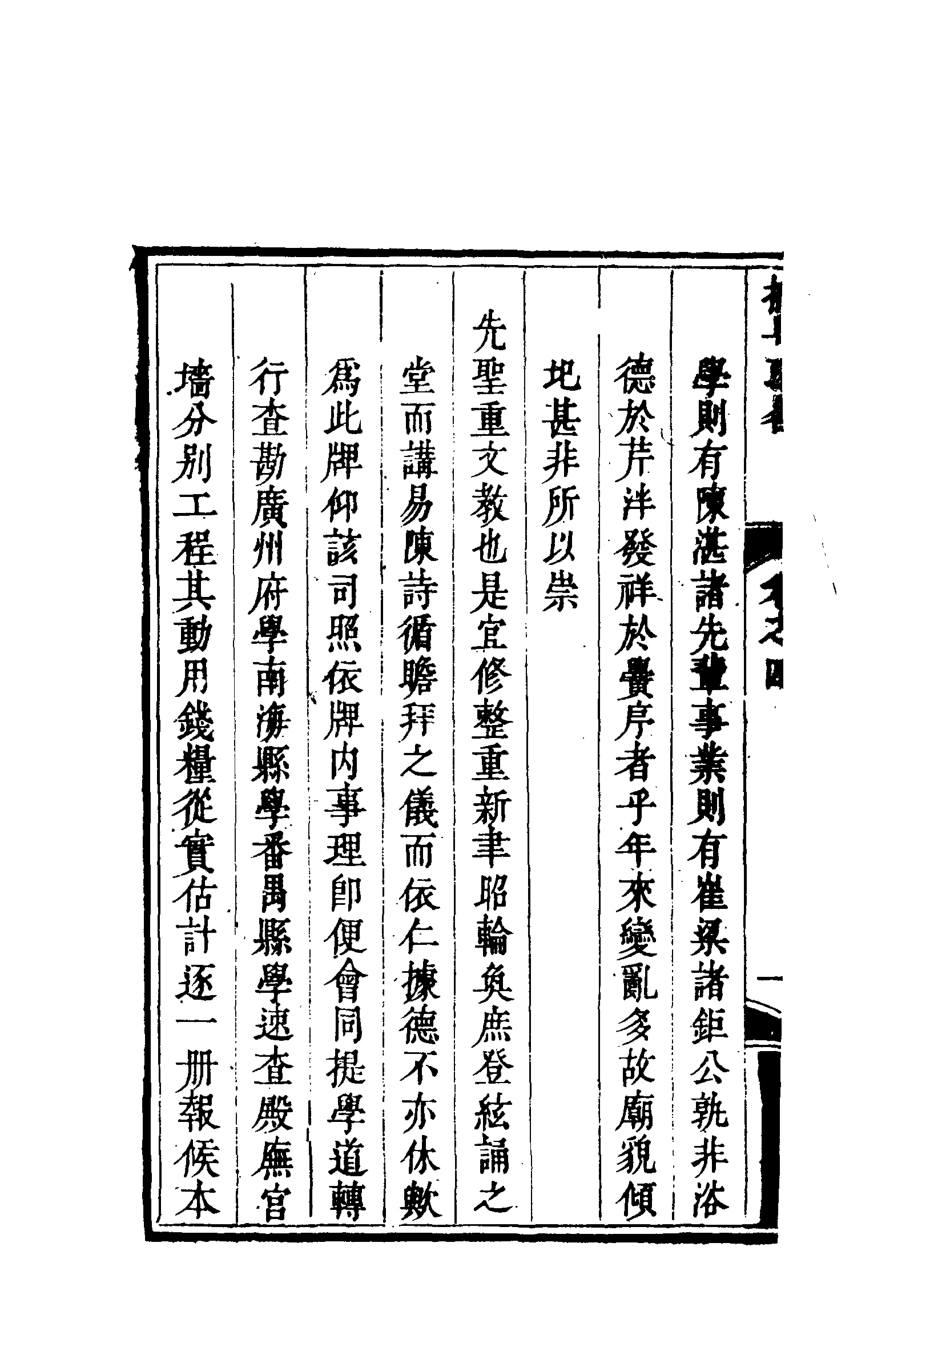 學則有陳湛諸先輩事業則有崔梁諸鉅公孰非浴
德於芹泮發祥於黌序者乎年來變亂多故廟貌傾
圯甚非所以崇
先聖重文教也是宜修整重新聿昭輪奐庶登絃誦之
堂而講易陳詩循瞻拜之儀而依仁據德不亦休歟
爲此牌仰該司照依牌内事理卽便會同提學道轉
行查勘廣州府學南海縣學番禺縣學速查殿廡宫
墻分别工程其動用錢糧從實估計逐一册報候本
卷之四
一